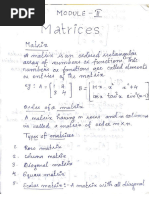 MODULE - II
Matrices
Matrix
A matrix is an ordered rectangular
array of numbers or functions. The
numbers or functions are called elements
or entities of the matrix.
Order of a matrix
A matrix having m rows and n columns
is called a matrix of order m × n.
Types of matrices
1. Row matrix
2. Column matrix
3. Diagonal matrix
4. Square matrix
5. Scalar matrix :- A matrix with all diagonal